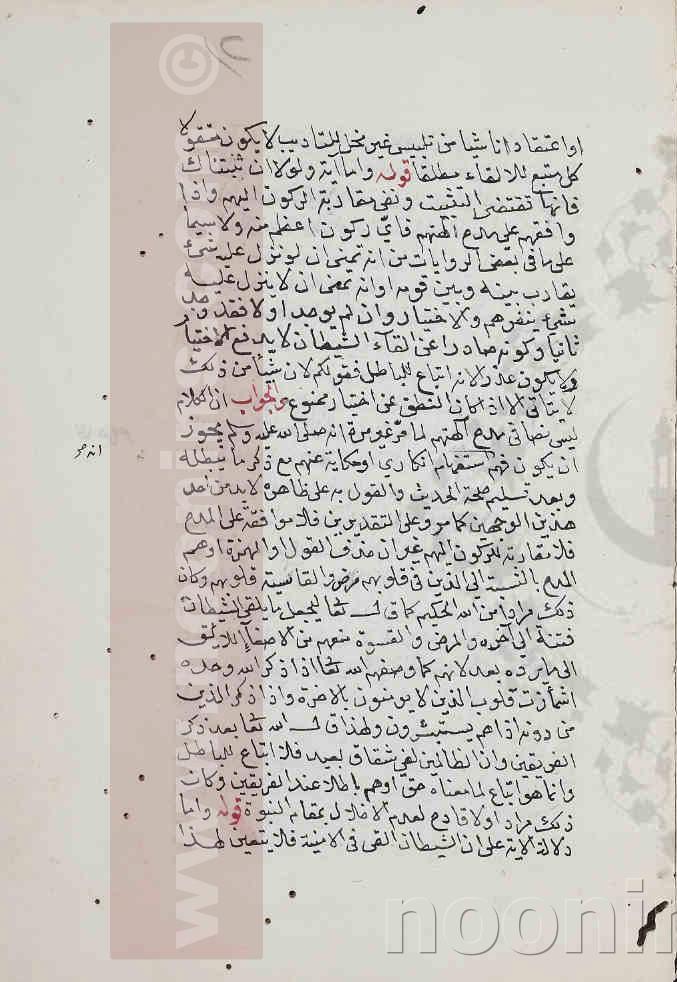 او اعتقاد ان شيأ من تلبيس غير مخل للتاديب لا يكون متقولا
كل متبع للالقاء مطلقا قوله واما آية ولولا ان ثبتناك
فانها تقتضى التثبيت ونفى مقاربة الركون اليهم واذا
وافقهم على مدح آلهتهم فاي ركون اعظم منه ولا سيما
على ما فى بعض الروايات من انه تمنى ان لو نزل عليه شئ
يقارب بينه وبين قومه او انه تمنى ان لا ينزل عليه
شئ ينفرهم والاختيار وان لم يوجد اولا فقد وجد
ثانيا وكونه صادرا عن القآء الشيطان لا يدفع الاختيا
ولا يكون عذر لانه اتباع للباطل فقولكم لان شيأ من ذلك
لا يتأتى الا اذا كان النطق عن اختيار ممنوع والجواب ان الكلام
ليس نصا فى مدح آلهتهم لما مر غير مرة انه صلى الله عليه وسلم يجوز
ان يكون فهم استفهام انكاري او حكاية عنهم مع ذكر ما يبطله
انه صح
وبعد تسليم صحة الحديث والقول به على ظاهره لا بد من احد
هذين الوجهين كما مر وعلى التقديرين فلا موافقة على المدح
فلا مقاربة للركون اليهم غير ان حذف القول والهمزة اوهم
المدح بالنسبة الى الذين فى قلوبهم مرض والقاسية قلوبهم وكان
ذلك مرادا من الله الحكيم كما قال الله تعالى ليجعل ما يلقى الشيطان
فتنة الى آخره والمرض والقسوة منعهم من الاصغآء اللائق
الى ما يرده بعد لانهم كما وصفهم الله تعالى اذا ذكر الله وحده
اشمأزت قلوب الذين لا يومنون بالاخرة واذا ذكر الذين
من دونه اذا هم يستبشرون ولهذا قال الله تعالى بعد ذكر
الفريقين وان الظالمين لفى شقاق بعيد فلا اتباع للباطل
وانما هو اتباع لما معناه حق اوهم باطلا عند الفريقين وكان
ذلك مراد اولا قادح لعدم الاخلال بمقام النبوة قوله واما
دلالة الاية على ان الشيطان القى فى الامنية فلا يتعين لهذا
www.noonin.com ©
noonin